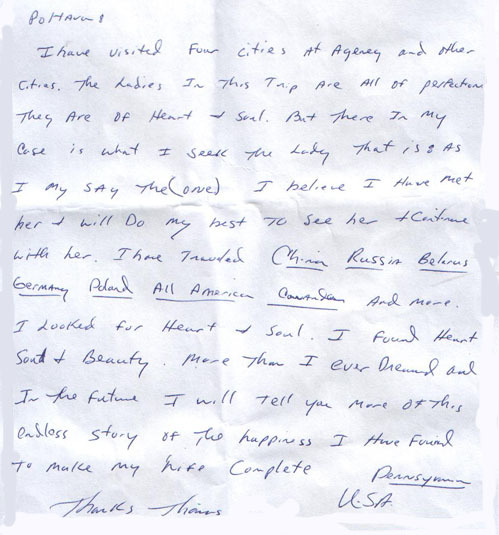 I have visited Four cities At Agency and other
Cities. The Ladies In This Trip Are All of perfection
They Are of Heart & Soul. But There In My
Case is what I seek The Lady That is & As
I my say The (one) I believe I Have met
her & will Do my best To see her & Continue
with her. I have Traveled China Russia Belarus
Germany Poland All American And more.
I Looked for Heart & Soul. I Found Heart
Soul & Beauty. More Than I ever Dreamed and
In the Future I will Tell you More of This
endless story of The happiness I Have Found
To make my Life Complete
Pennsyvania
Thanks Thomas
U.S.A.